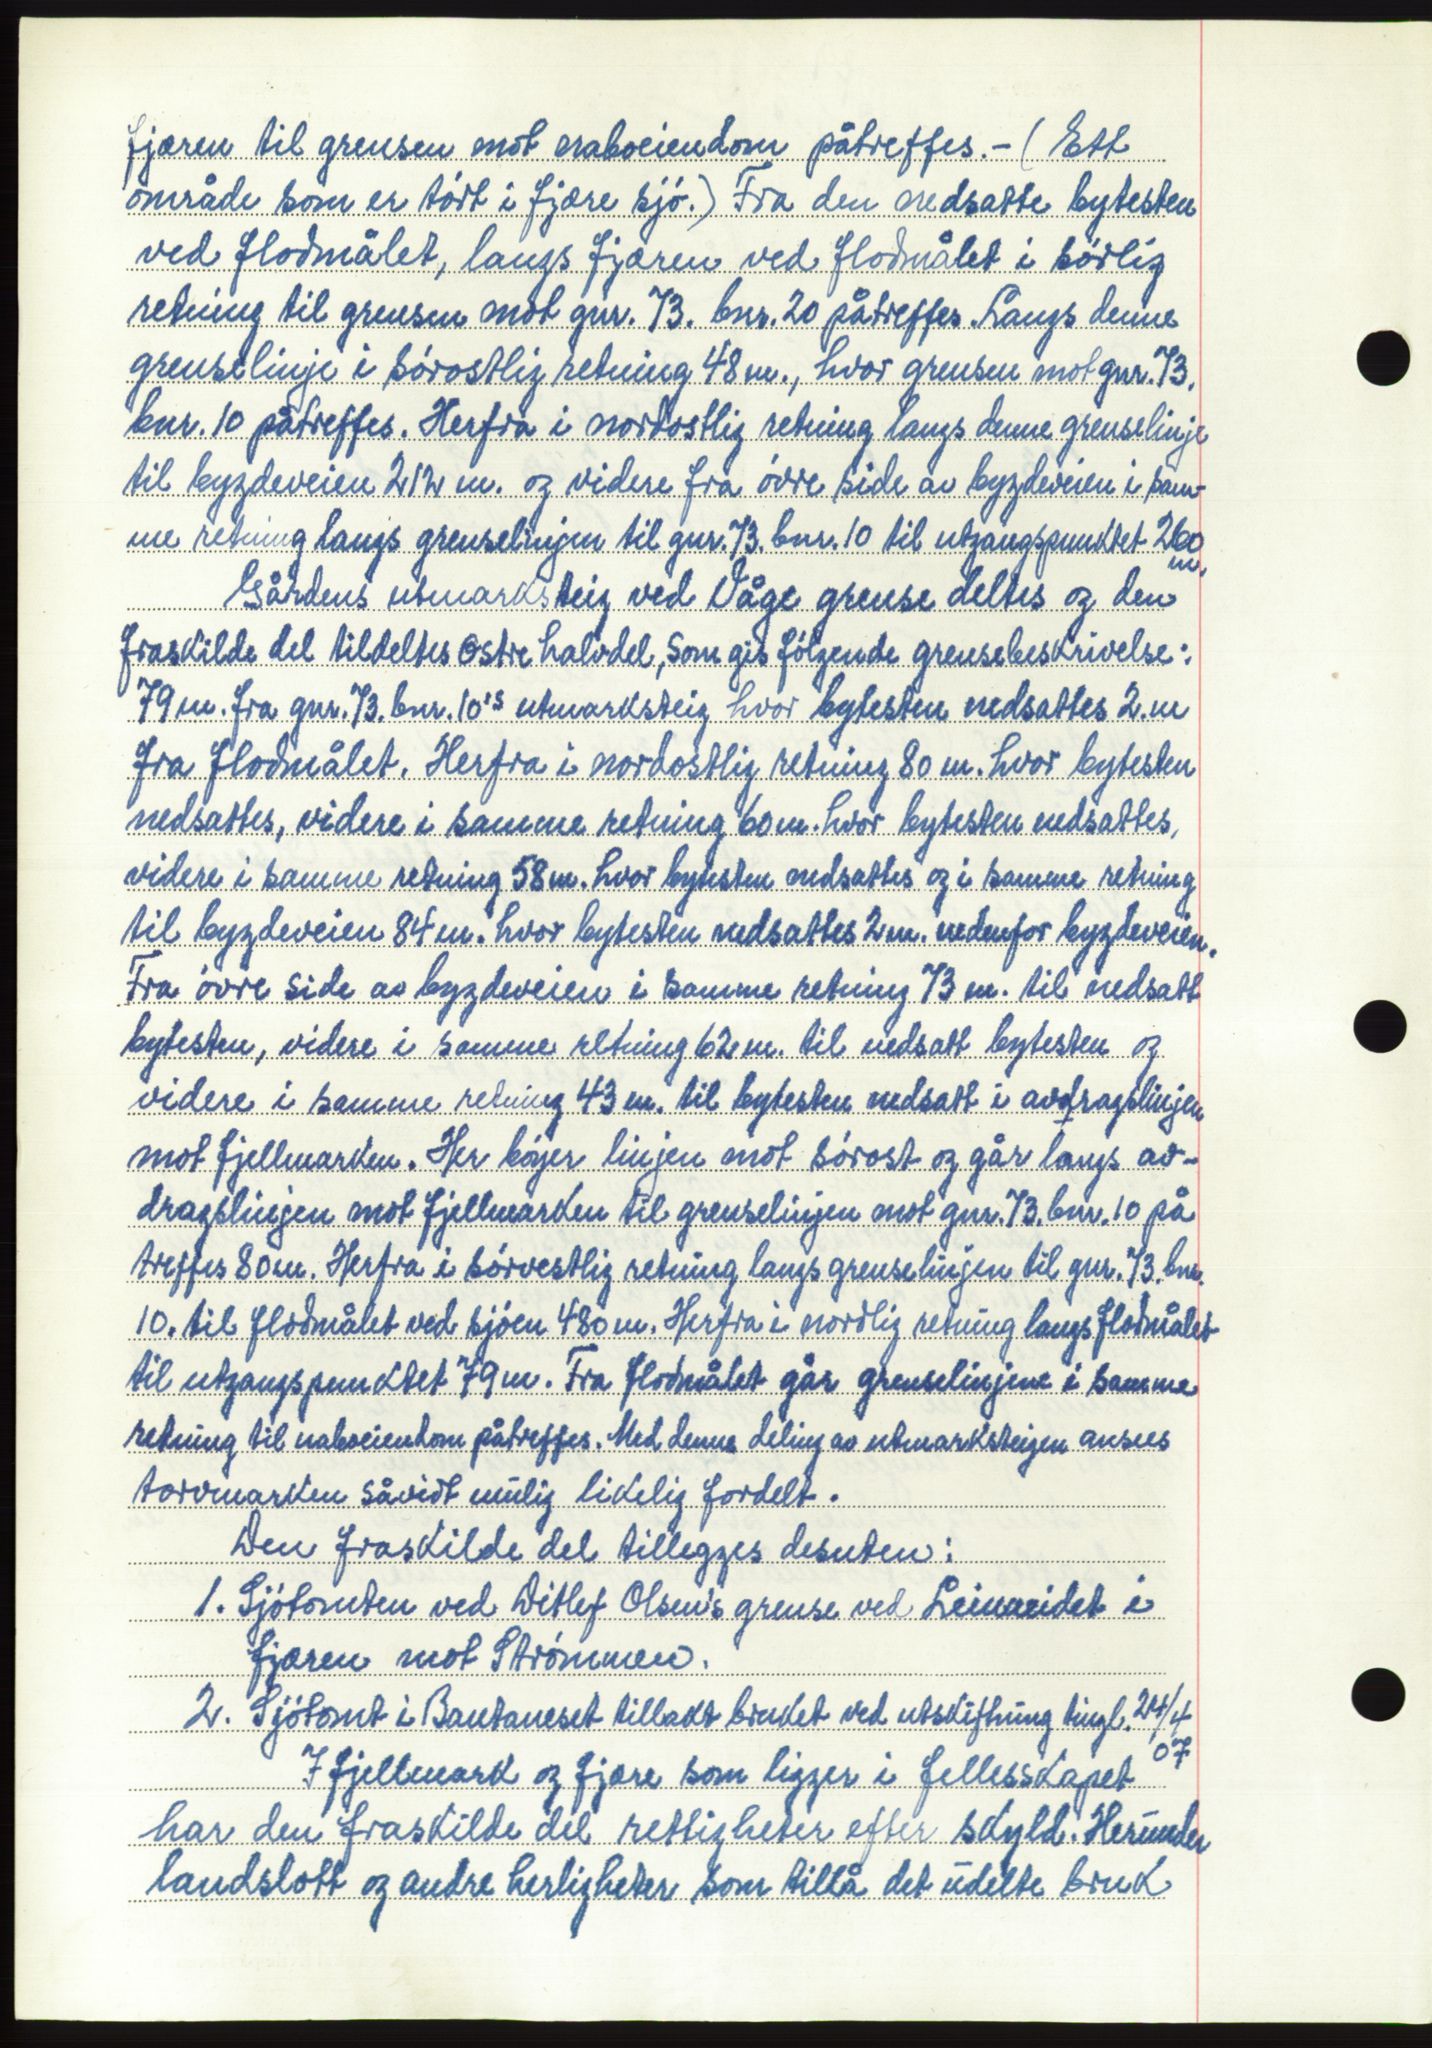 fjæren til grensen mot naboeiendom påtreffes. - (Ett
område som er tørt i fjære sjø.) Fra den nedsatte bytesten
ved flodmålet, langs fjæren ved flodmålet i sørlig
retning til grensen mot gnr. 73. bnr. 20 påtreffes. Langs denne
grenselinje i sørostlig retning 48 m., hvor grensen mot gnr. 73.
bnr. 10 påtreffes. Herfra i nordostlig retning langs denne grenselinje
til bygdeveien 212 m. og videre fra øvre side av bygdeveien i sam-
me retning langs grenselinjen til gnr. 73. bnr. 10 til utgangspunktet 260
m.
Gårdens utmarksteig ved Våge grense deltes og den
fraskilde del tildeltes østre halvdel, som gis følgende grensebeskrivelse:
79 m. fra gnr. 73. bnr. 10's utmarksteig hvor bytesten nedsattes 2. m
fra flodmålet. Herfra i nordostlig retning 80 m. hvor bytesten
nedsattes, videre i samme retning 60 m. hvor bytesten nedsattes,
videre i samme retning 58 m. hvor bytesten nedsattes og i samme retning
til bygdeveien 84 m. hvor bytesten nedsattes 2 m. nedenfor bygdeveien.
Fra øvre side av bygdeveien i samme retning 73 m. til nedsatt
bytesten, videre i samme retning 62 m. til nedsatt bytesten og
videre i samme retning 43 m. til bytesten nedsatt i avdragslinjen
mot fjellmarken. Her bøyer linjen mot sørost og går langs av-
dragslinjen mot fjellmarken til grenselinjen mot gnr. 73. bnr. 10 på
treffes 80 m. Herfra i sørvestlig retning langs grenselinjen til gnr. 73. bnr.
10. til flodmålet ved sjøen 480 m. Herfra i nordlig retning langs flodmålet
til utgangspunktet 79 m. Fra flodmålet går grenselinjene i samme
retning til naboeiendom påtreffes. Med denne deling av utmarksteigen ansees
torvmarken såvidt mulig likelig fordelt.
Den fraskilde del tillegges desuten:
1. Sjøtomten ved Ditlef Olsen's grense ved Leinæidet i
fjæren mot Strømmen.
2. Sjøtomt i Bautaneset tillakt bruket ved utskiftning tingl. 24/4
07
I fjellmark og fjære som ligger i fellesskapet
har den fraskilde del rettigheter efter skyld. Herunder
landslott og andre herligheter som tillå det udelte bruk